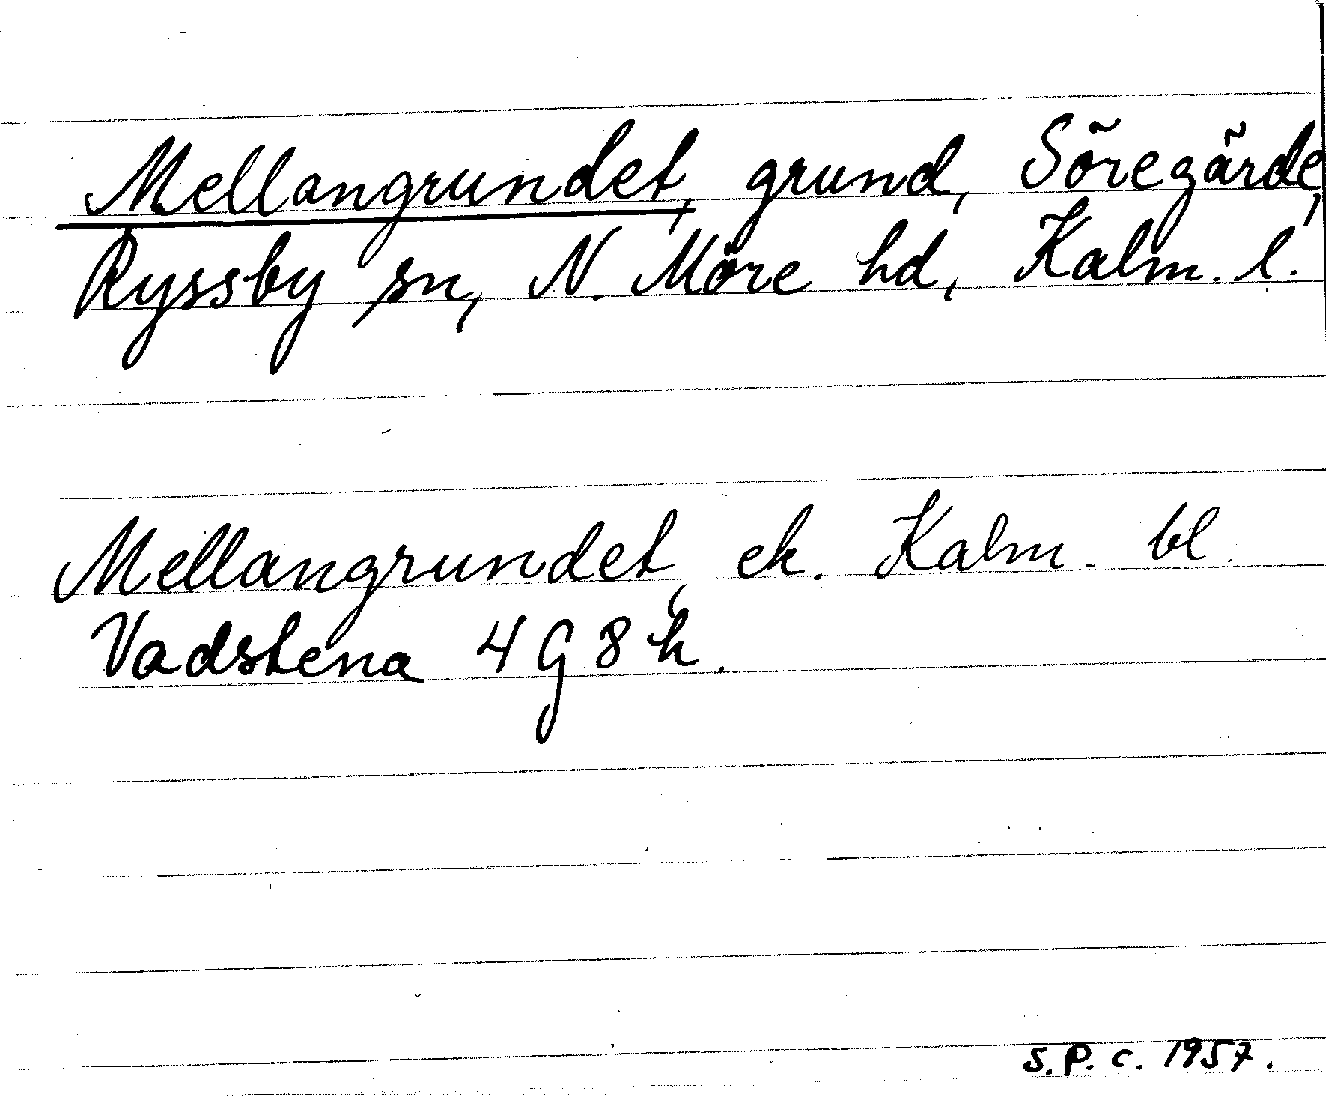 Mellangrundet, grund, Söregärde,
Ryssby sn, N. Möre hd, Kalm. l.
Mellangrundet, ek. Kalm. bl.
Vadstena 4 G 8 h.
S.P. c. 1957.